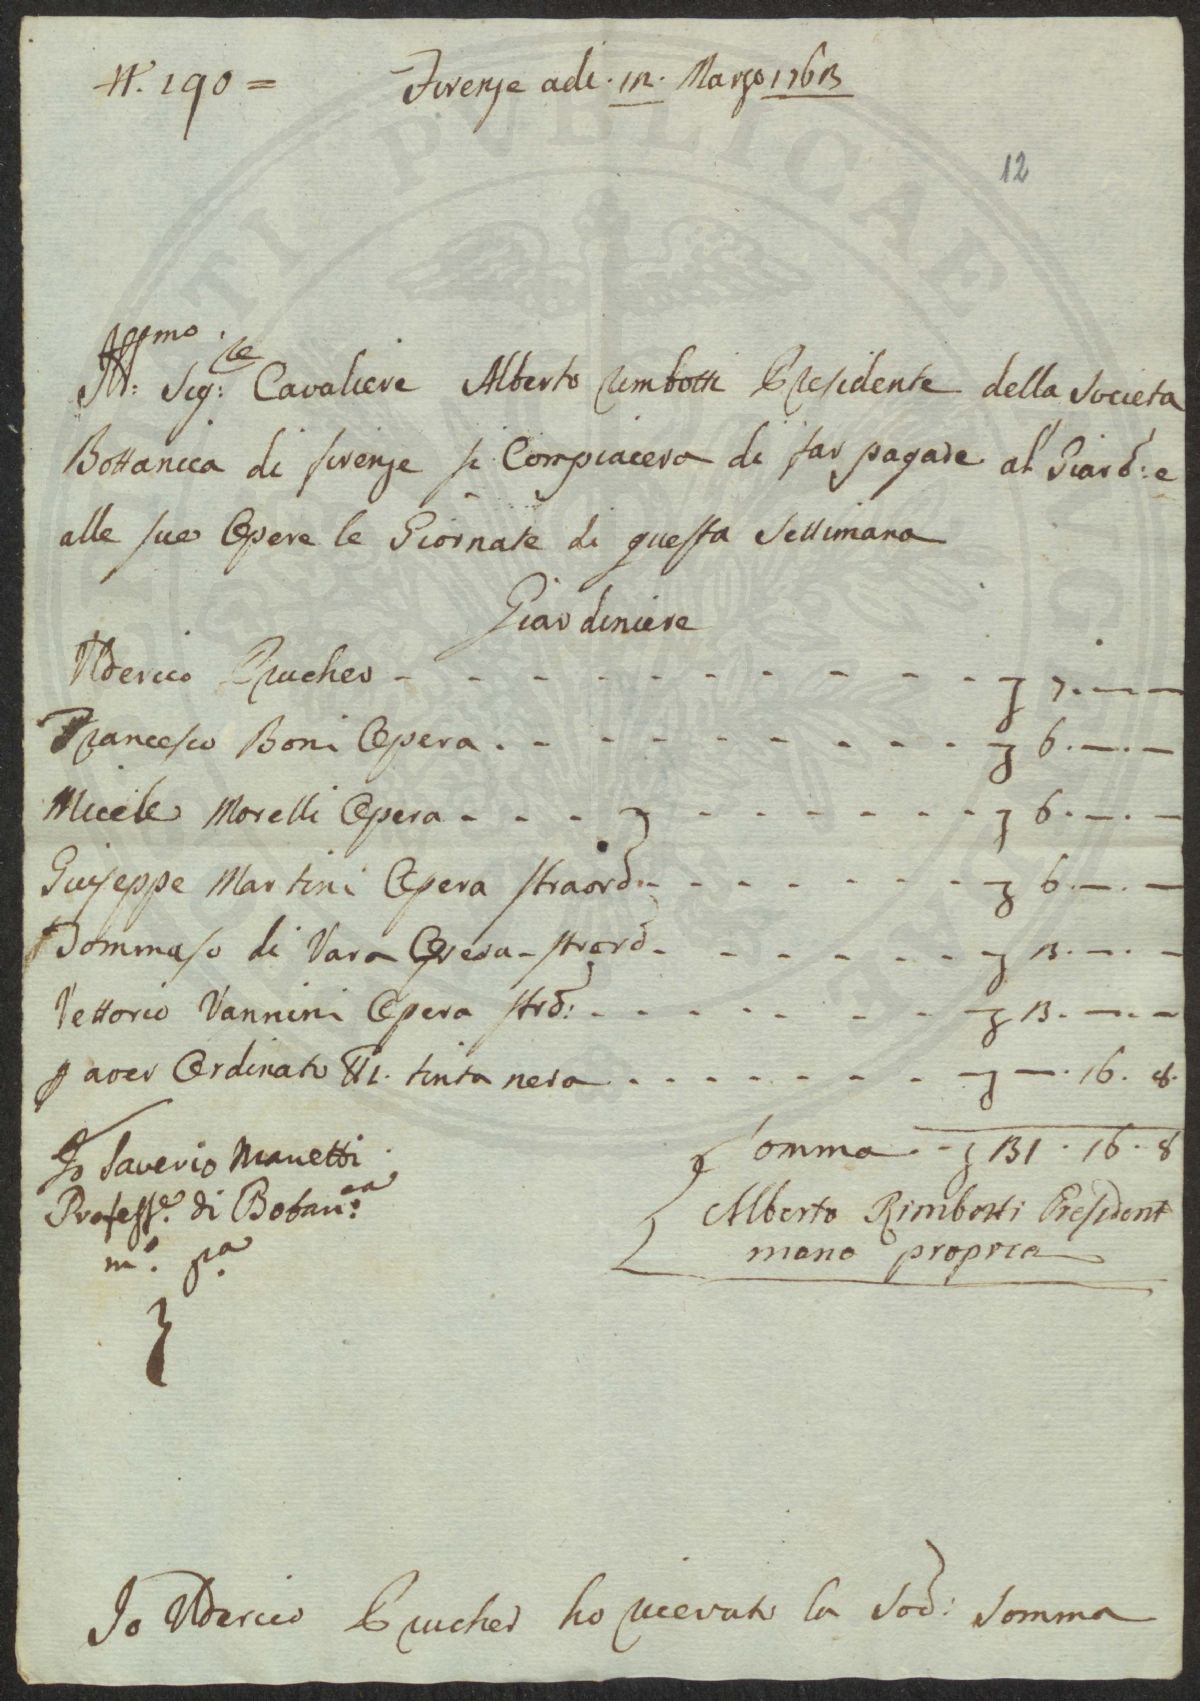 N. 190 = Firenze adi. 12. Marzo 1763
12
Ill:mo Sig:re Cavaliere Alberto Rimbotti Presidente della Società
Bottanica di firenze si Compiacera di far pagare al Giard: e
alle sue Opere le Giornate di questa Settimana
Giardiniere
Ulderico Prucher - - - - - - - - - - - £ 7. — —
Francesco Boni Opera . - - - - - - - - - £ 6. —. —
Micele Morelli Opera - - - - - - - - - - £ 6. —. —
Giuseppe Martini Opera straord: - - - - - - £ 6. —. —
Tommaso di Vara Opera - strord - - - - - - £ 3. —. —
Vettorio Vannini Opera strd: - - - - - - - £ 3. —. —
p aver Ordinato tinta nera . . - - - - - £ —. 16. 8.
Somma - - £ 31. 16. 8
Io Saverio Manetti
Profess.e di Botan:ca
m.o p.a
Alberto Rimbotti President
mano propria
Io Ulderico Prucher ho ricevuto la Sod: Somma
PVBLICAE